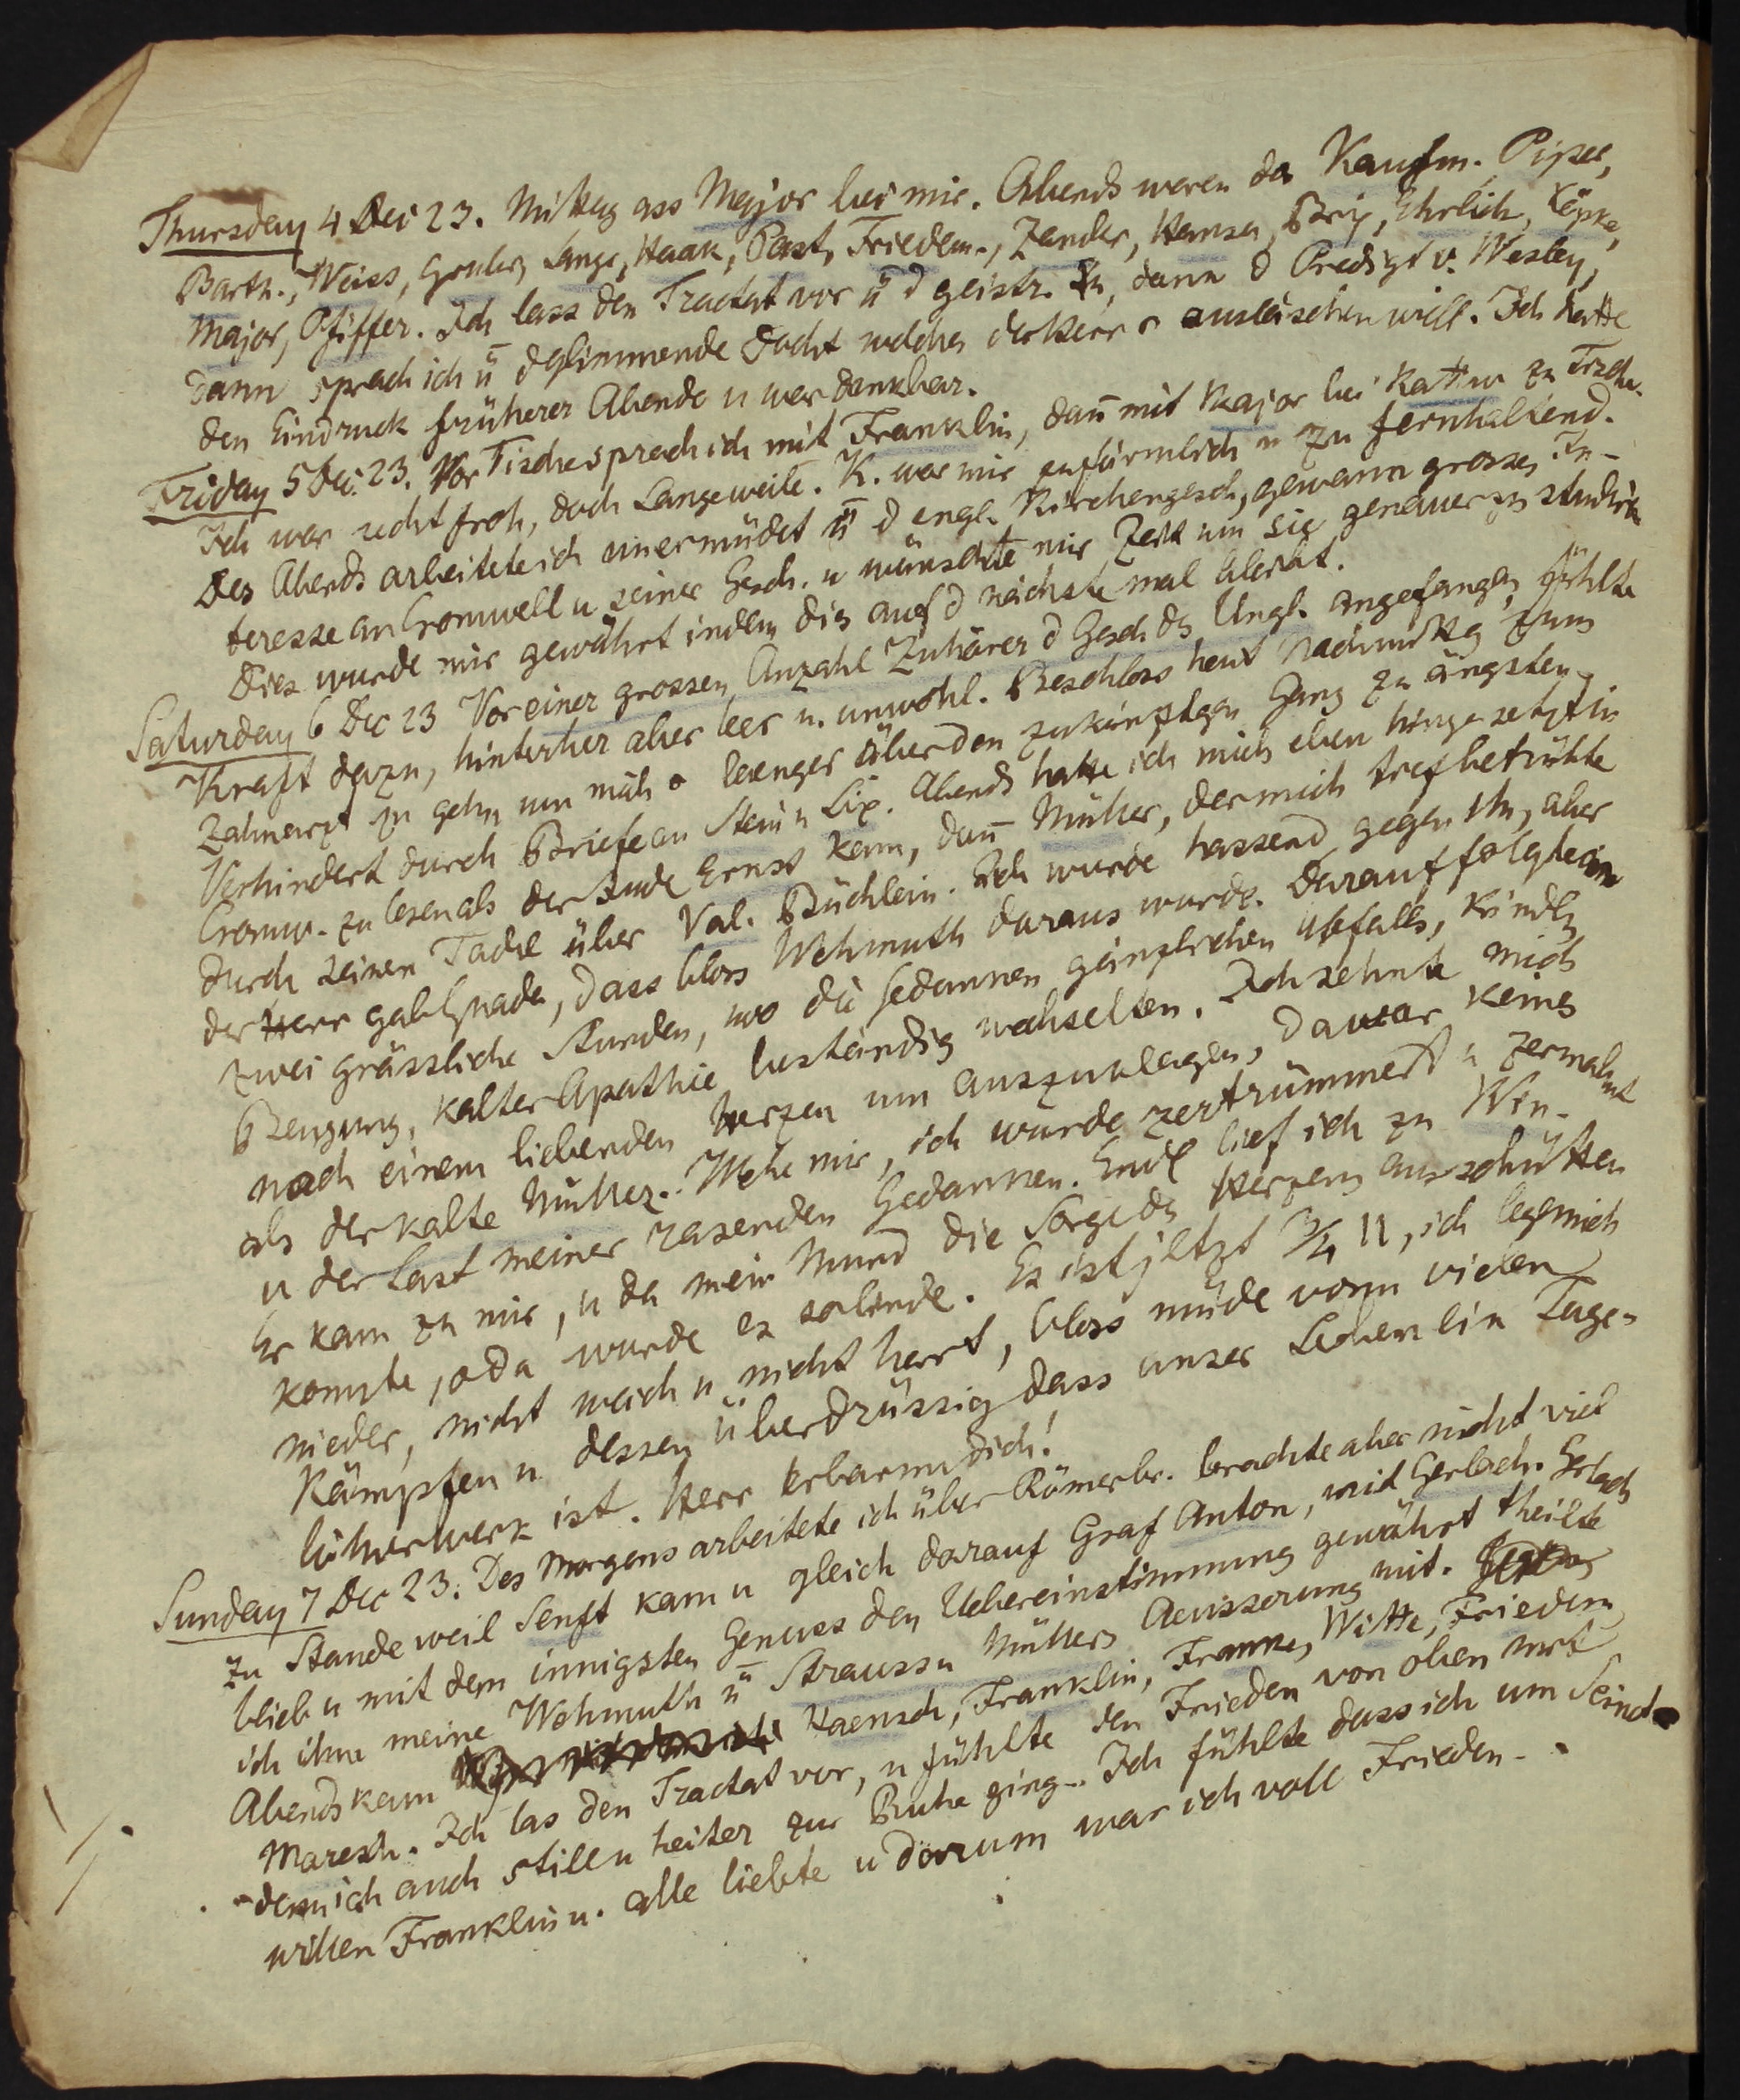 Thursday 4 Dec 23. Mittag ass Major bei mir. Abends waren da Kaufm. Piper,
Barth., Weiss, Lange, Haak, Past, Friedem., Zander, Hansen, Brix, Ehrlich, Köpke,
Major, Pfiffer. Ich lass den Tractat vor ü d geistr. dann d Predigt v. Wesley,
Dann sprach ich ü d glimmende Docht welches der Herr o auslöschen will. Ich hatte
den Eindruck früherer Abende u war dankbar.
Friday 5 Dec. 23. Vor Tische sprach ich mit Franklin, dan̄ mit Major bei Kattw zu Tische.
Ich war recht froh, doch Langeweile. K. war mir zu förmlich u zu fernhaltend.
Des Abends arbeitete ich unermüdet ü d engl. Kirchengesch, gewann grosses In-
teresse an Cromwell u seiner Gesch. u wünschte mir Zeit um sie genauer zu studiren
Dies wurde mir gewährt indem dies auf d nächste mal bleibt.
Saturday 6 Dec 23 Vor einer grossen Anzahl Zuhörer d Gesch ds Ungl. angefangen, fühlte
Kraft dazu, hinterher aber leer u. unwohl. Beschloss heut Nachmittag zum
Zahnarzt zu gehn um mich o laenger über den zukünftgen Gang zu ängsten.
Verhindert durch Briefe an Stein u Lix. Abends hatte ich mich eben hingesetzt in
Cromw. zu lesen als der Jude Ernst kam, dan̄ Müller, der mich tief betrübte
durch seinen Tadel über Val. Büchlein. Ich wurde hassend gegen ihn, aber
der Herr gab Gnade, dass bloss Wehmuth daraus wurde. Darauf folgten
zwei grässliche Stunden, wo die Gedanken gänzlichen Abfalls, kindlr
Beugung, kalter Apathie beständig wechselten. Ich sehnte mich
nach einem liebenden Herzen um auszuklagen, da war keines
als der kalte Müller. Wehe mir, ich wurde zertrümmert u zermalmt
u der Last meiner rasenden Gedanken. Endl lief ich zu Win-
Er kam zu mir, u da mein Mund die Sorge ds Herzens ausschütten
konnte, o da wurde es so linde. Es ist jetzt 3/4 11, ich lege mich
nieder, nicht weich u nicht hart, bloss müde vom vielen
Kämpfen u dessen überdrüssig dass unser Leben ein Tage-
löhnerwerk ist. Herr erbarm dich!
Sunday 7 Dec 23. Des Morgens arbeitete ich über Römerbr. brachte aber nicht viel
zu Stande weil Senft kam u gleich darauf Graf Anton, mit Gerlach. Gerlach
blieb u mit dem innigsten Genuss den Uebereinstimmung gewährt theilte
ich ihm meine Wehmuth ü Strauss u Müllers Aeusserung mit.
Abends kam Haensch, Franklin, Franke, Witte, Friedem
Maresch. Ich las den Tractat vor, u fühlte den Frieden von oben mit
dem ich auch still u heiter zur Ruhe ging. Ich fühlte dass ich um Seinet
willen Franklin u. alle liebte u darum war ich voll Frieden.